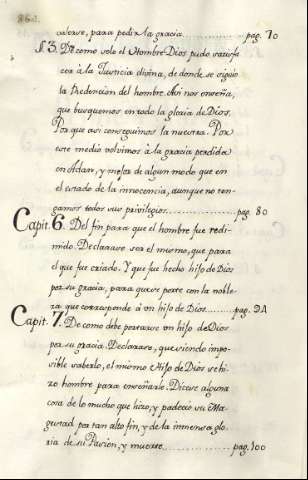 valerse, para pedir la gracia............pag. 70
§. 3. De como solo el Hombre Dios pudo satisfa
cer à la Justicia divina, de donde se siguio
la Redencion del hombre. Asi nos enseña,
que busquemos en todo la gloria de Dios.
Porque asi conseguimos la nuestra. Por
este medio volvimos à la gracia perdida
en Adan, y mejor de algun modo que en
el estado de la innocencia, aunque no ten-
gamos todos sus privilegios................pag. 80
Capit. 6. Del fin para que el hombre fue redi-
mido. Declarase ser el mismo, que para
el que fue criado. Y que fue hecho hijo de Dios
por su gracia, para que se porte con la noble-
za que corresponde à un hijo de Dios........pag. 94
Capit. 7. De como debe portarse un hijo de Dios
por su gracia. Declarase, que siendo impo-
sible saberlo, el mismo Hijo de Dios se hi-
zo hombre para enseñarle. Dicese alguna
cosa de lo mucho que hizo, y padecio su Ma-
gestad por tan alto fin, y de la inmensa glo
ria de su Pasion, y muerte...................pag. 100